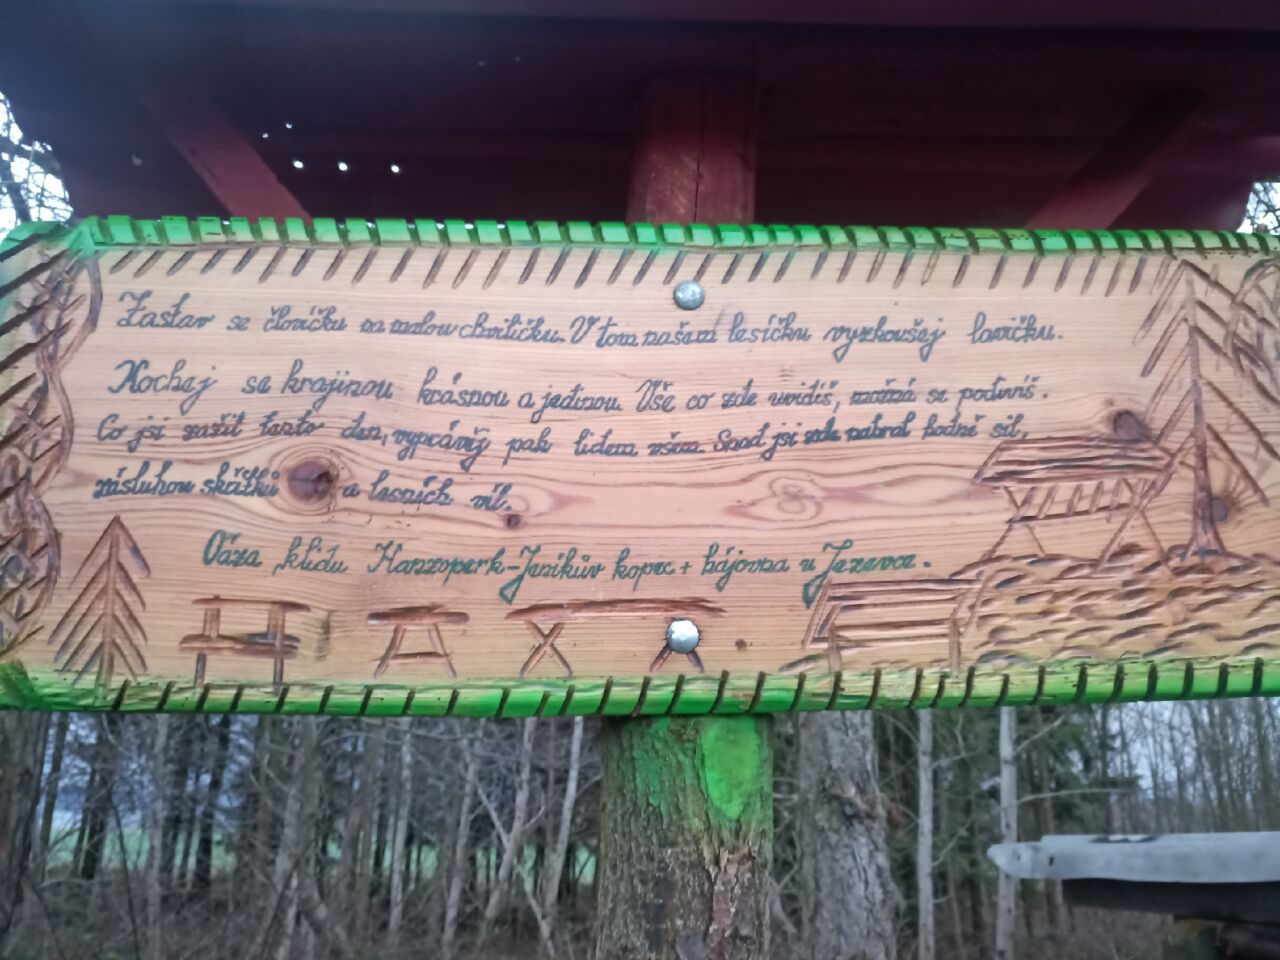 Zastav se človíčku na malou chviličku. V tom našem lesíčku vyzkoušej lavičku.
Kochej se krajinou krásnou a jedinou. Vše co zde uvidíš, možná se podivíš.
Co jsi zažil tento den, vyprávěj pak lidem všem. Snad jsi zde nabral hodně sil,
zásluhou skřítků a lesních víl.
Oáza klidu Hanzoperk-Jeníkův kopec + hájovna u Jezevce.